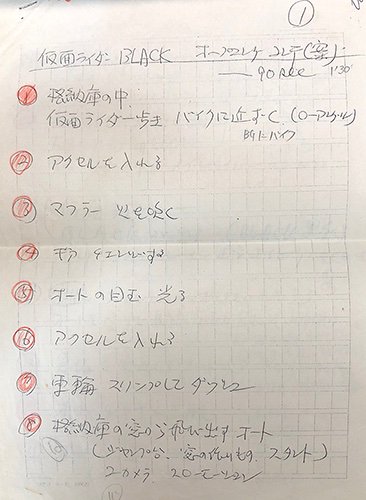 ①
仮面ライダーBLACK オープニング コンテ(案)
90sec 1'30"
1 格納庫の中
仮面ライダー歩き バイクに近ずく (ローアングル)
2 アクセルを入れる
3 マフラー 火を吹く
4 ギア チェンジする
5 オートの目玉 光る
6 アクセルを入れる
7 車輪 スリップして ダッシュ
8 格納庫の窓から飛び出す オート
(ジャンプ台、窓の作りもの、スタント)
2カメラ スローモーション